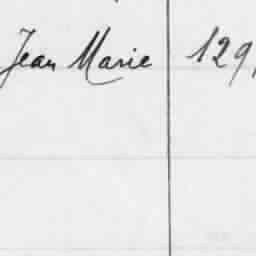 Jean Marie 129,